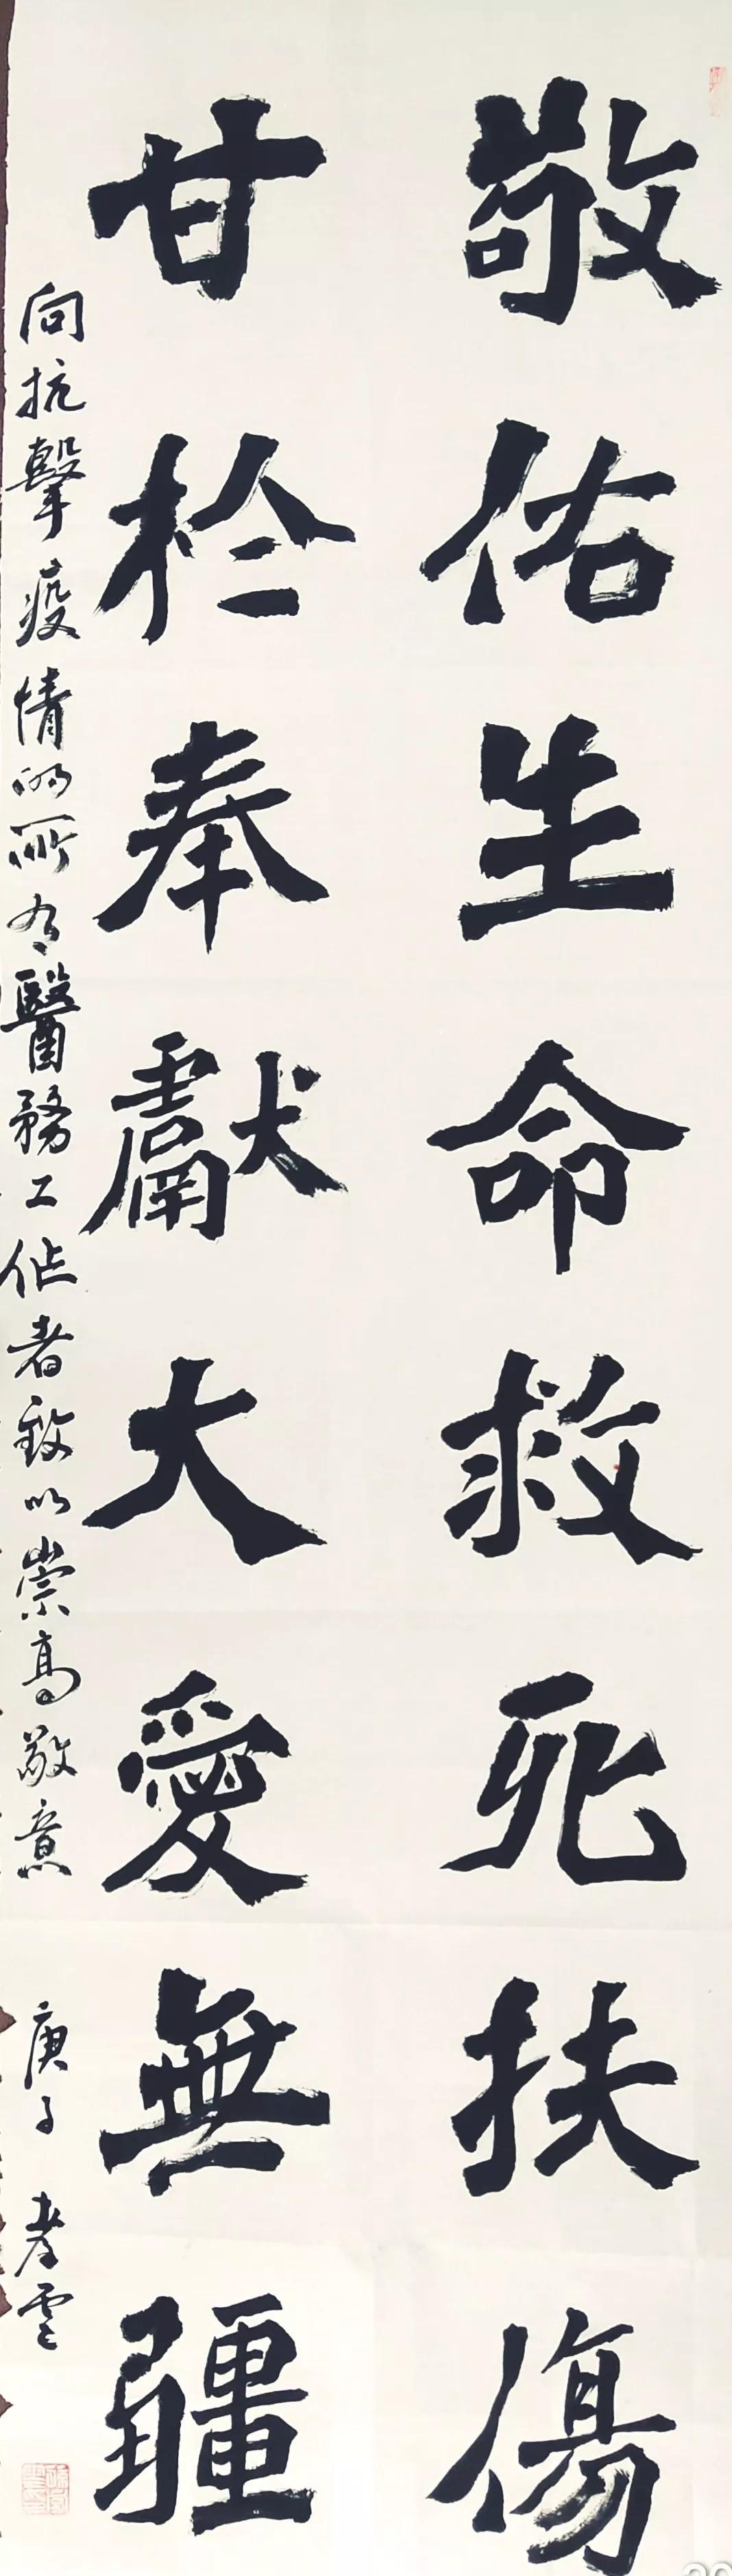 敬佑生命救死扶傷
甘於奉獻大愛無疆
向抗擊疫情的所有醫務工作者致以崇高敬意
庚子 孝雲